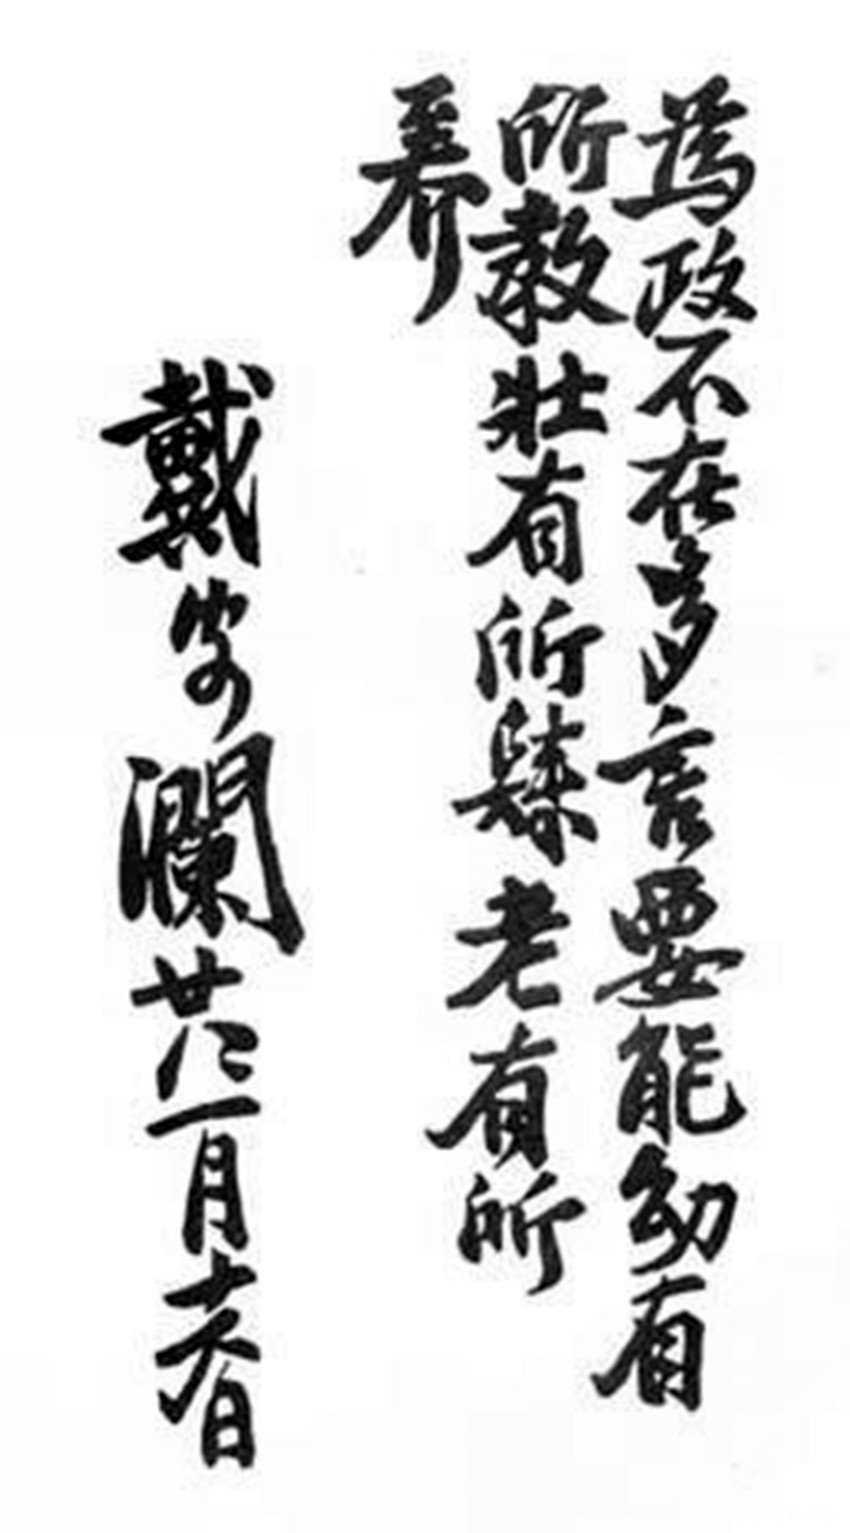 為政不在多言要能幼有
所教壯有所肄老有所
養
戴安瀾廿八 月 日